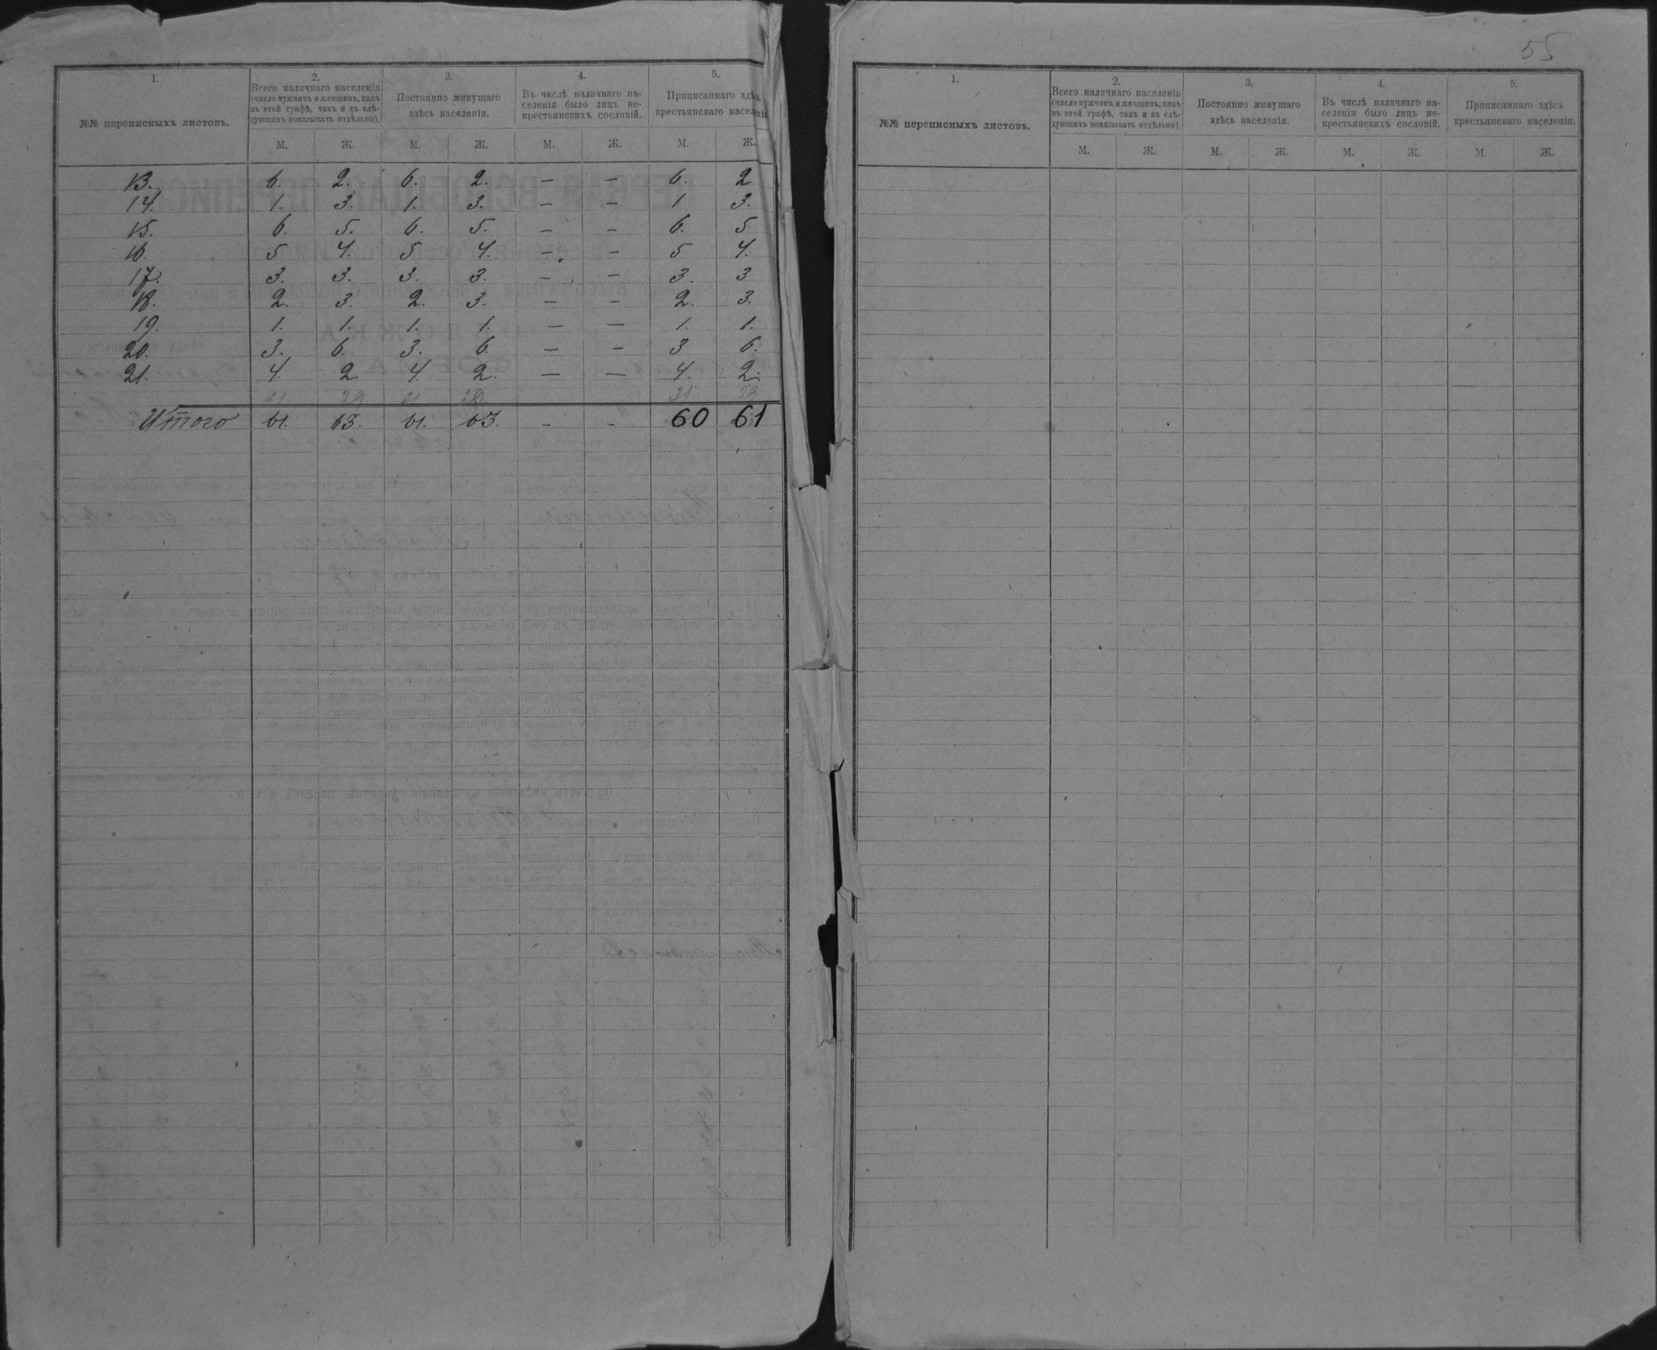 55
1. 2. 3. 4. 5.
№№ переписныхъ листовъ.
Всего наличнаго населенія
(число мужчинъ и женщинъ, какъ
въ этой графѣ, такъ и въ слѣ-
дующихъ показывать отдѣльно).
Постоянно живущаго
здѣсь населенія.
Въ числѣ наличнаго на-
селенія было лицъ не-
крестьянскихъ сословій.
Приписаннаго здѣсь
крестьянскаго населенія.
М. Ж. М. Ж. М. Ж. М. Ж.
13. 6. 2. 6. 2. — — 6. 2
14. 1. 3. 1. 3. — — 1 3.
15. 6. 5. 6. 5. — — 6. 5
16. 5 4. 5 4. — — 5 4.
17. 3. 3. 3. 3. — — 3. 3
18. 2. 3. 2. 3. — — 2. 3.
19. 1. 1. 1. 1. — — 1. 1.
20. 3. 6. 3. 6. — — 3 6.
21. 4. 2 4 2. — — 4. 2.
31 29 31 29 31 29
Итого 61. 63. 61. 63. - - 60 61
1. 2. 3. 4. 5.
№№ переписныхъ листовъ.
Всего наличнаго населенія
(число мужчинъ и женщинъ, какъ
въ этой графѣ, такъ и въ слѣ-
дующихъ показывать отдѣльно)
Постоянно живущаго
здѣсь населенія.
Въ числѣ наличнаго на-
селенія было лицъ не-
крестьянскихъ сословій.
Приписаннаго здѣсь
крестьянскаго населенія.
М. Ж. М. Ж. М. Ж. М. Ж.